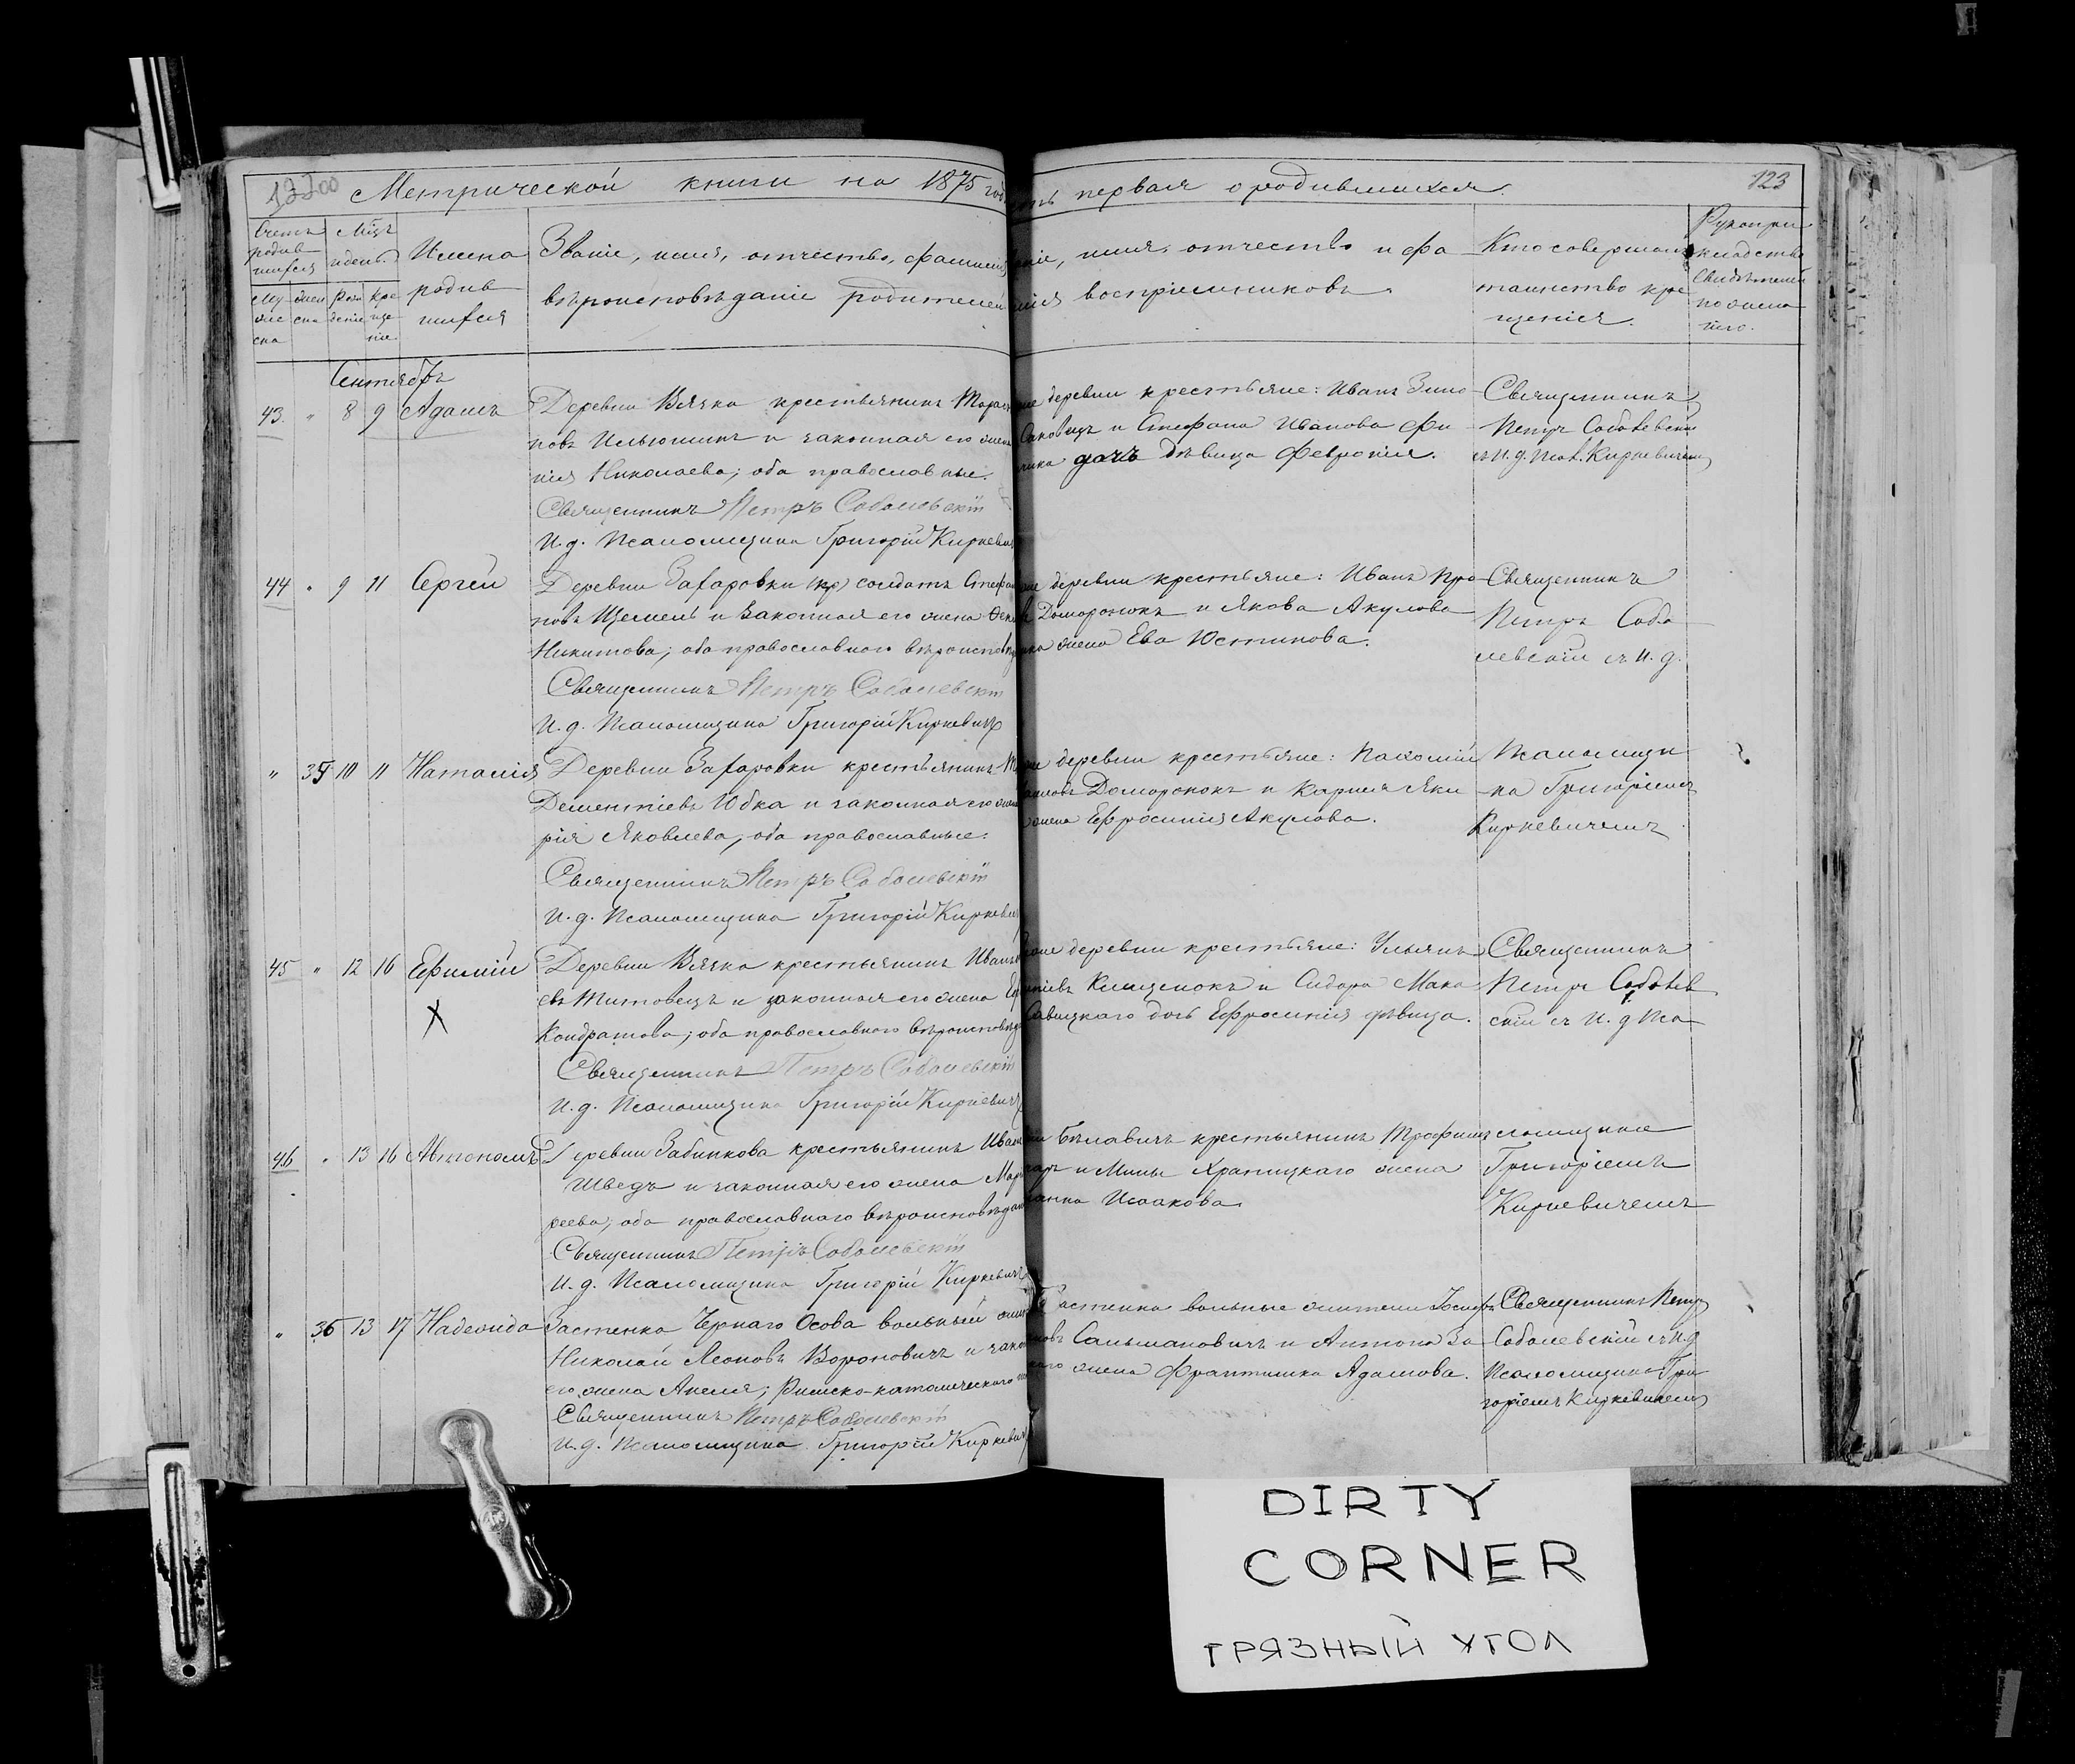 Метрической книги на 1875 год
первая о родившихся.
123
Счетъ родив- шихся
Мѣсц. и день.
Имена родив- шихся
Званіе, имя, отчество, фамилія
вѣроисповѣданіе родителей
имя, отчество и фа-
воспріемниковъ.
Кто совершалъ
таинство кре-
щенія.
Рукопри-
кладство
свидѣтелей
по жела-
нію.
Сентябрь
43. " 8 9 Адамъ
Деревни Вязка крестьянинъ Тарас
новъ Ильюшикъ и законная его жена
нія Николаева; оба православные.
Священникъ Петръ Соболевскій
И. д. Псаломщика Григорій Киркевич
деревни крестьяне: Иванъ Зино-
и Стефана Иванова Фи-
дочъ дѣвица Февронія.
Священникъ
Петръ Соболевскій
съ И. д. Псал. Киркевичемъ
44 " 9 11 Сергѣй
Деревни Захаровки (кр) солдатъ Стефан
новъ Щемель и законная его жена
Никитова; оба православного вѣроисповѣд
Священникъ Петръ Соболевскій
И. д. Псаломщика Григорій Киркевичъ
деревни крестьяне: Иванъ Про-
Доморонокъ и Якова Акулова
жена Ева Юстинова.
Священникъ
Петръ Собо-
левскій съ И. д.
" 35 10 11 Наталія
Деревни Захаровки крестьянинъ
Дементіевъ Юбка и законная его жена
рія Яковлева; оба православные.
Священникъ Петръ Соболевскій
И. д. Псаломщика Григорій Киркевич
деревни крестьяне: Пахомій
Доморонокъ и Карпа Яки-
жена Ефросинія Акулова.
Псаломщи-
ка Григоріемъ
Киркевичемъ
45 " 12 16 Ефимій
X
Деревни Вязка крестьянинъ Иванъ
евъ Титовецъ и законная его жена
Кондратова; оба православного вѣроисповѣд
Священникъ Петръ Соболевскій
И. д. Псаломщика Григорій Киркевичъ
деревни крестьяне: Ульянъ
Клищенокъ и Сидора Мака
Савицкаго дочь Ефросинія дѣвица.
Священникъ
Петръ Соболев
скій съ И. д Пса-
46 " 13 16 Автономъ
Деревни Забинкова крестьянинъ Иван
Шведъ и законная его жена Мар
оба православного вѣроисповѣдан
Священникъ Петръ Соболевскій
И. д. Псаломщика Григорій Киркевичъ
Бѣлавичъ крестьянинъ Трофимъ
и Мины Храпицкаго жена
Исаакова
ломщикомъ
Григоріемъ
Киркевичемъ
" 36 13 17 Надежда
Застенка Чернаго Осова вольный
Николай Леоновъ Вороновичъ и зако
его жена Анеля; Римско-католическаго
Священникъ Петръ Соболевскій
И. д. Псаломщика Григорій Киркевич
Застенка вольные жители Іосифъ
Сальмановичъ и Антона За-
жена Франтишка Адамова.
Священникъ Петр
Соболевскій съ И.д
Псаломщика Гри-
горіемъ Киркевичемъ
DIRTY
CORNER
ГРЯЗНЫЙ УГОЛ